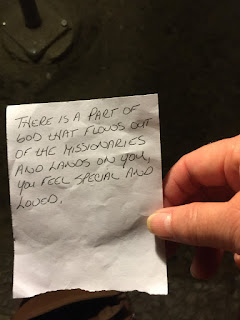 THERE IS A PART OF
GOD THAT FLOWS OUT
OF THE MISSIONARIES
AND LANDS ON YOU,
YOU FEEL SPECIAL AND
LOVED.